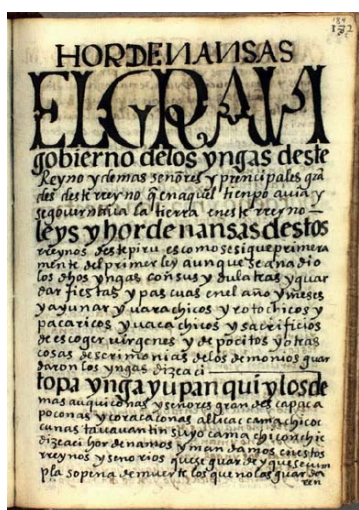 184
182
HORDENANSAS
EL GRAN
gobierno delos yngas deste
Reyno y demas señores y prencipales grã
des deste rreyno q̃ enaquel tienpo auia y
segouernaua la tierra eneste rreyno
leys y hordenansas destos
rreynos deste piru es como sesigue primera
mente del primer ley aunque se añadio
los dhos yngas con sus ydulatras y guar
dar fiestas y pascuas enel año y meses
y ayunar y uarachicos y rotochicos y
pacaricos y uacachicos y sacrificios
de escoger uirgenes y depocitos y otras
cosas de scrimonias delos demonios guar
daron los yngas dizeaci
topa ynga yupanqui y los de
mas auquiconas y señores grandes capac a
poconas y coracaconas allicac camachicoc
cunas tauauantin suyo camachiconchic
dizeaci hordenamos y mandamos enestos
rreynos y senorios que se guarde y que secum
pla sopena de muerte los que no las guarda
ren